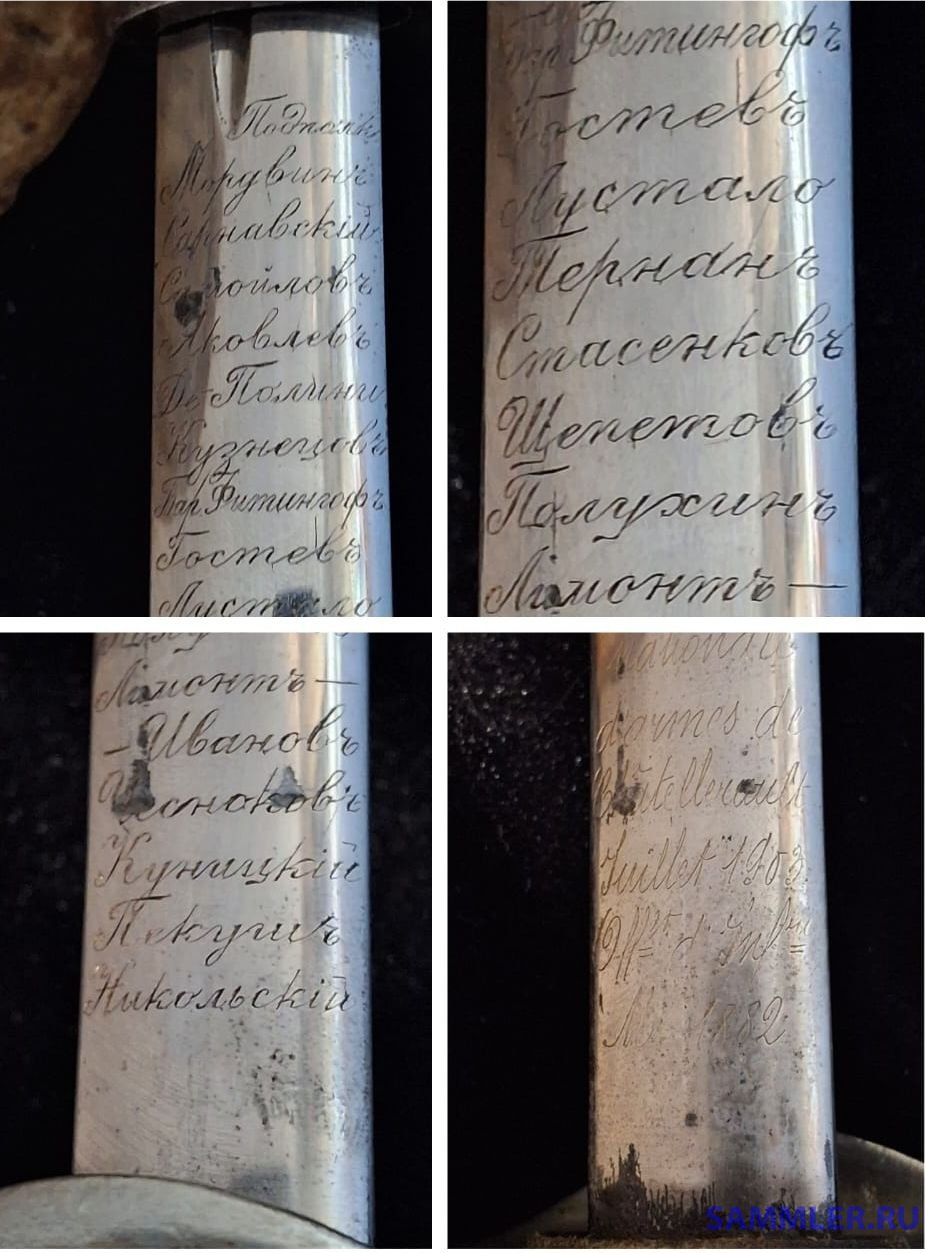 Подполк
Мордвинъ
Сарнавскій
Самойловъ
Яковлевъ
Де-Полини
Кузнецовъ
Бар Фитингофъ
Гостевъ
Лустало
Бар Фитингофъ
Гостевъ
Лустало
Тернанъ
Стасенковъ
Щепетовъ
Полухинъ
Лимонтъ—
Лимонтъ—
—Ивановъ
Чесноковъ
Куницкій
Пекучич
Никольскій
Nationale
d'armes de
Châtellerault
Juillet 1903
Offer d'Infrie
Mle 1882
SAMMLER.RU